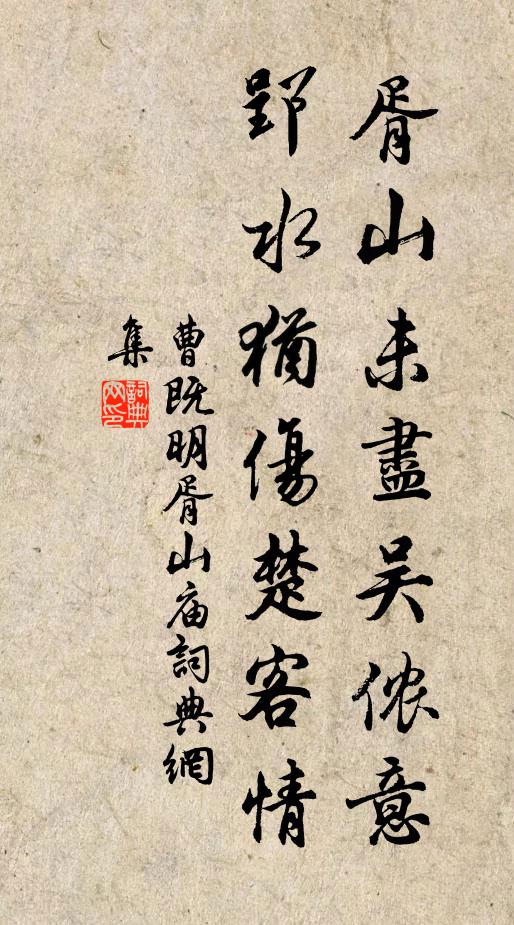 胥山未盡吴侬意
郢水猶傷楚客情
曹既明胥山庙詞典網
集
詞典網印